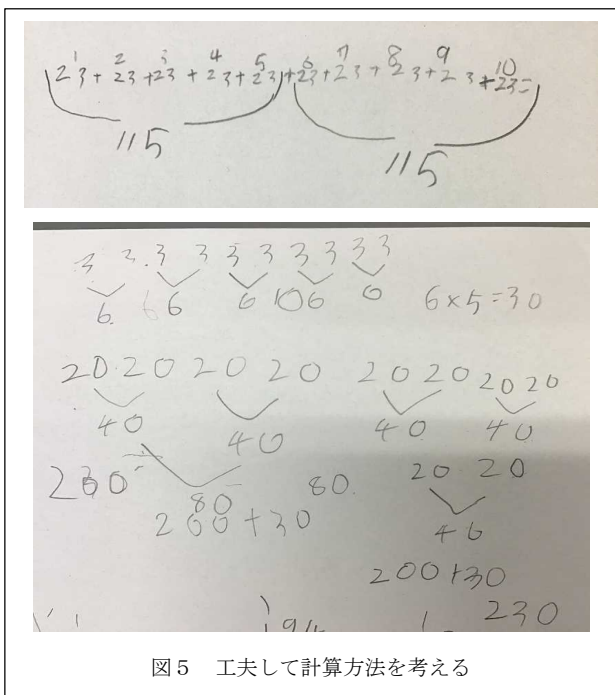 1 2 3 4 5 6 7 8 9 10
23+23+23+23+23+23+23+23+23+23=
115 115
3 3 3 3 3 3 3 3 3 3
6 6 6 10 6 6 6×5=30
20 20 20 20 20 20 20 20
40 40 40 40
230 80 80 20 20
200+30 40
200+30
230
図5 工夫して計算方法を考える